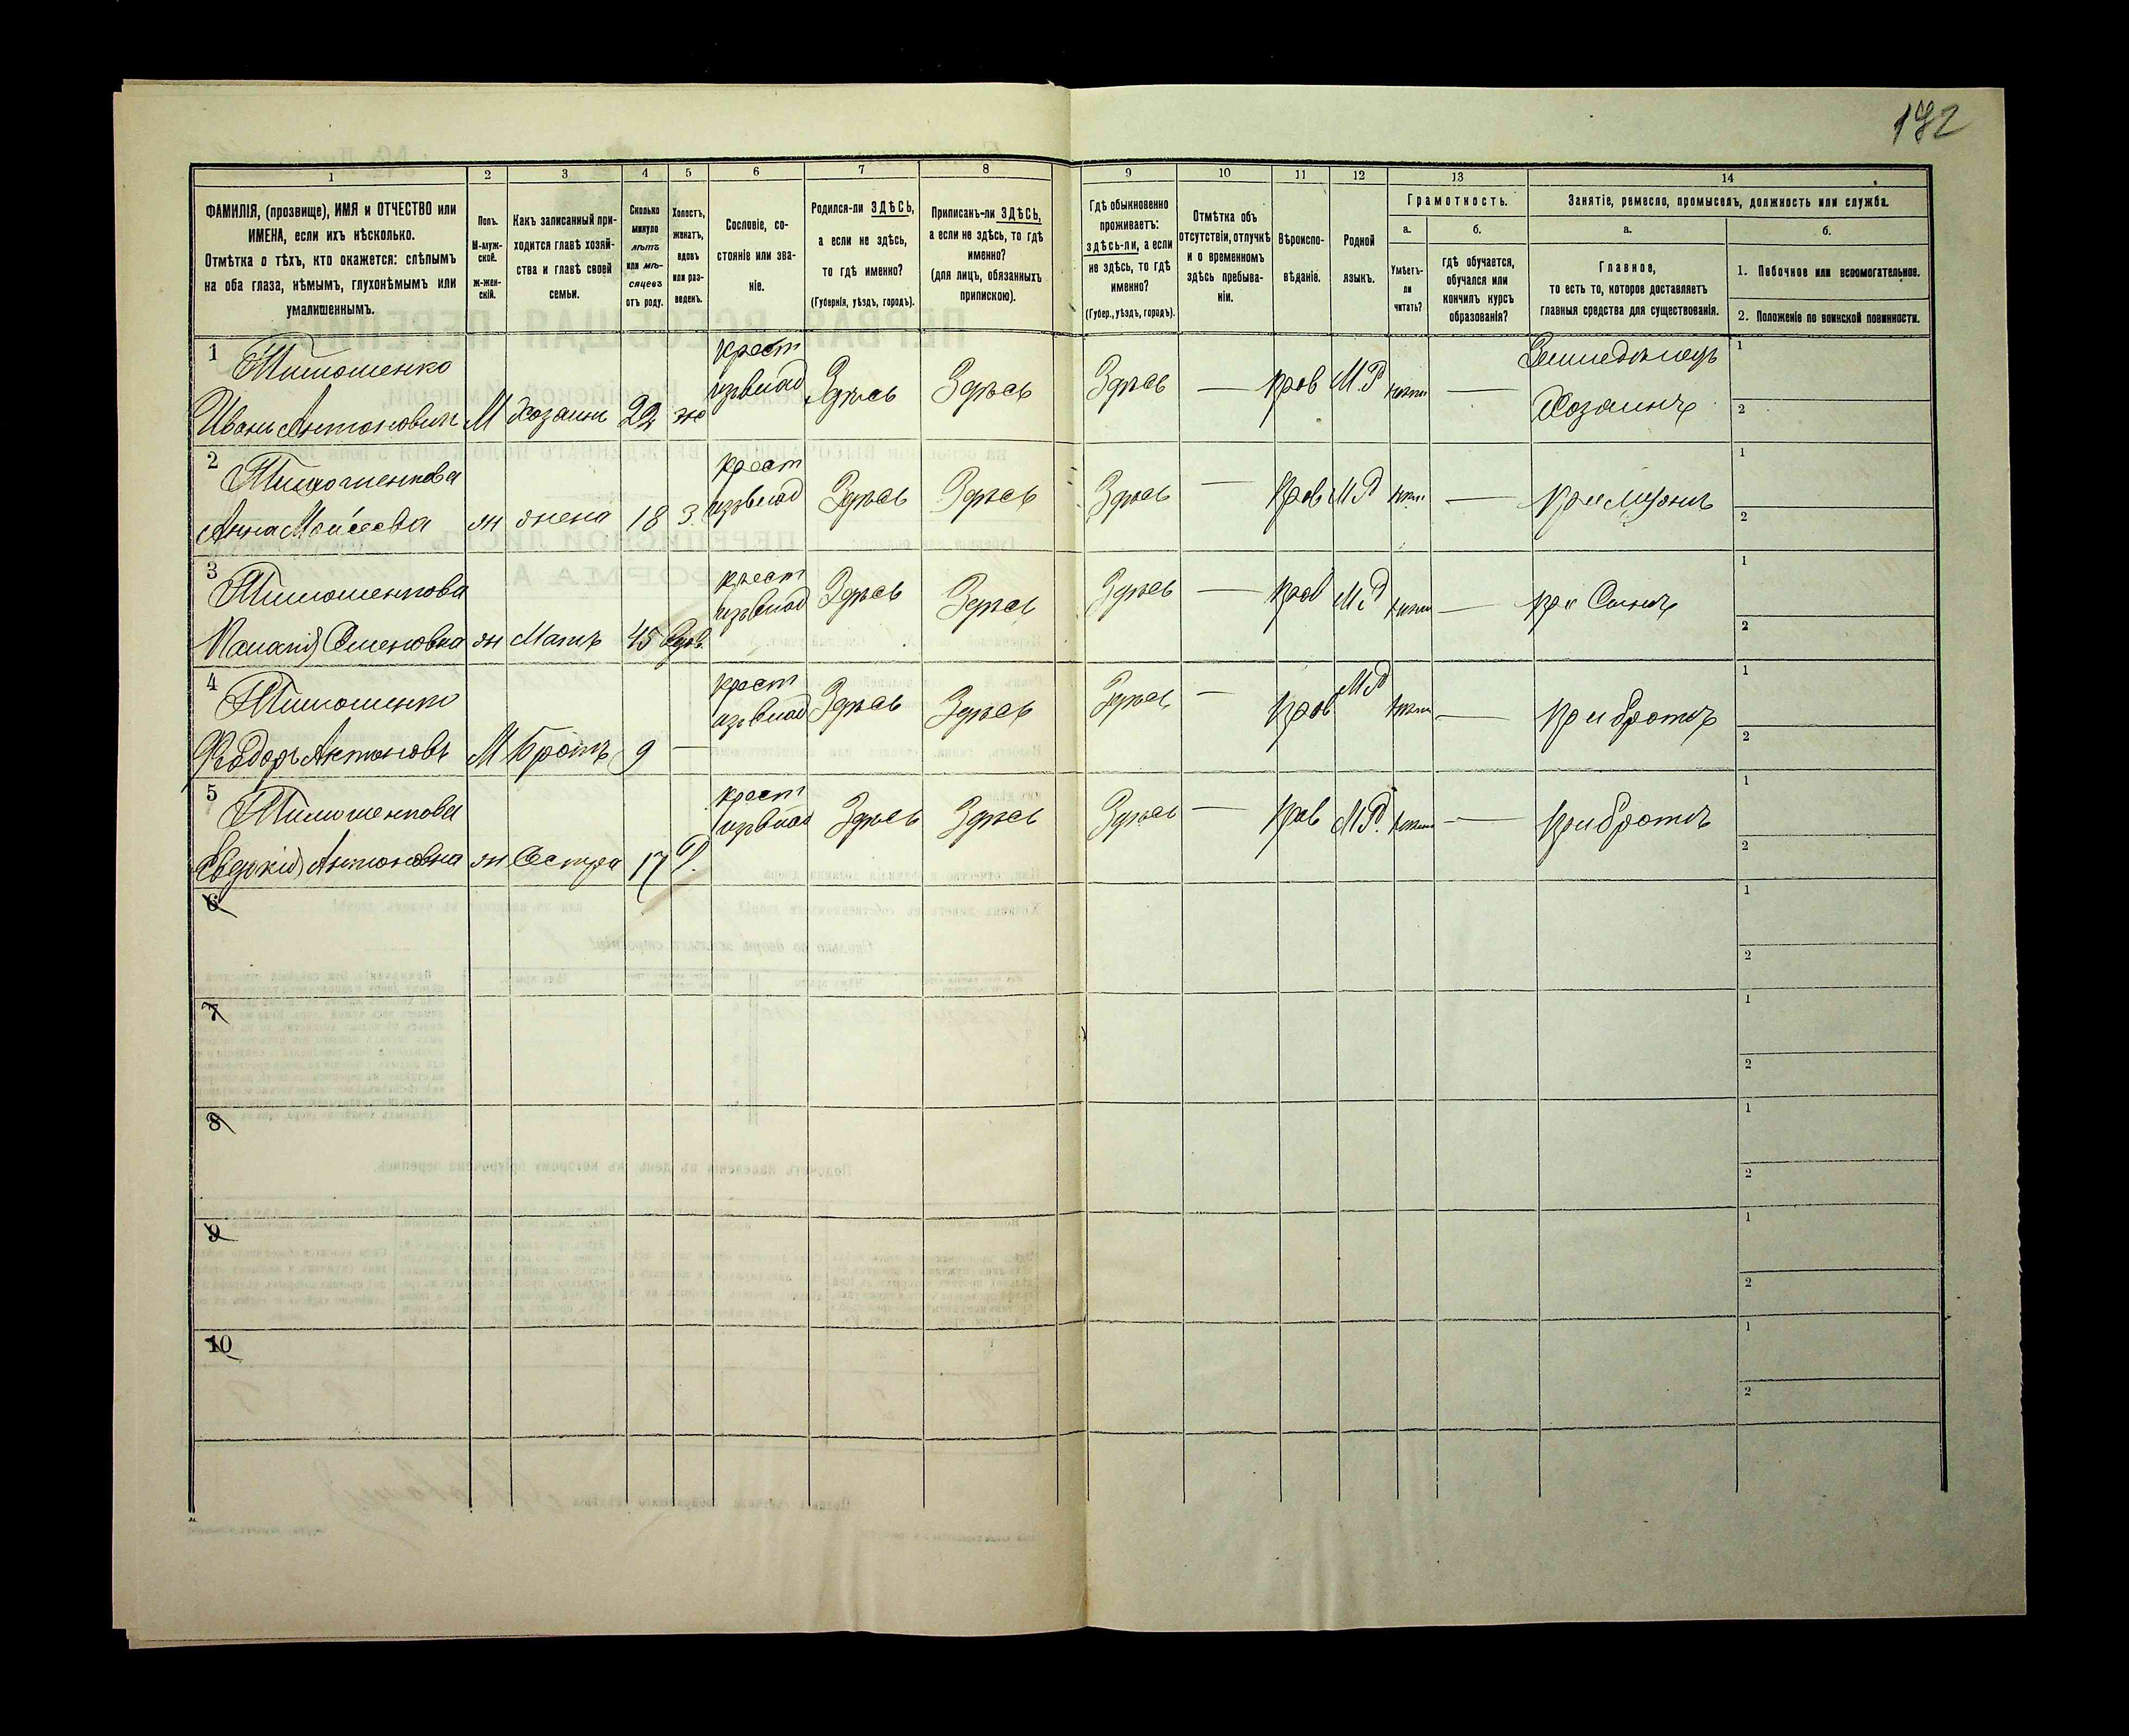 192
1
2
3
4
5
6
7
8
9
10
11
12
13
14
ФАМИЛІЯ, (прозвище), ИМЯ и ОТЧЕСТВО или
ИМЕНА, если ихъ нѣсколько.
Отмѣтка о тѣхъ, кто окажется: слѣпымъ
на оба глаза, нѣмымъ, глухонѣмымъ или
умалишеннымъ.
Полъ.
М-муж-
ской.
Ж-жен-
скій.
Какъ записанный при-
ходится главѣ хозяй-
ства и главѣ своей
семьи.
Сколько
минуло
лѣтъ
или мѣ-
сяцевъ
отъ роду.
Холостъ,
женатъ,
вдовъ
или раз-
веденъ.
Сословіе, со-
стояніе или зва-
ніе.
Родился-ли ЗДѢСЬ,
а если не здѣсь,
то гдѣ именно?
(Губернія, уѣздъ, городъ).
Приписанъ-ли ЗДѢСЬ,
а если не здѣсь, то гдѣ
именно?
(для лицъ, обязанныхъ
припискою).
Гдѣ обыкновенно
проживаетъ:
здѣсь-ли, а если
не здѣсь, то гдѣ
именно?
(Губер., уѣздъ, городъ).
Отмѣтка объ
отсутствіи, отлучкѣ
и о временномъ
здѣсь пребыва-
ніи.
Вѣроиспо-
вѣданіе.
Родной
языкъ.
Грамотность.
а.
Умѣетъ-
ли
читать?
б.
гдѣ обучается,
обучался или
кончилъ курсъ
образованія?
Занятіе, ремесло, промыселъ, должность или служба.
а.
Главное,
то есть то, которое доставляетъ
главныя средства для существованія.
б.
1. Побочное или вспомогательное.
2. Положеніе по воинской повинности.
1 Тимошенко крест Земледѣлецъ 1
Иванъ Антоновичъ М Хозяинъ 22 ж Здѣсь Здѣсь Здѣсь — Прав М.Р — Хозяинъ 2
2 Тимошенкова крест 1
Анна Моисеева ж жена 18 З. Здѣсь Здѣсь Здѣсь — Прав М Р — При мужѣ 2
3 Тимошенкова крест 1
Семеновна ж Мать 45 Вдов. Здѣсь Здѣсь Здѣсь — Прав М Р — При Сынѣ 2
4 Тимошенко крест 1
Ѳедоръ Антоновъ М Братъ 9 — Здѣсь Здѣсь Здѣсь — Прав М Р — При братѣ 2
5 Тимошенкова крест 1
Евдокія Антоновна ж Сестра 17 Здѣсь Здѣсь Здѣсь — Прав М Р. — При братѣ 2
6 1
2
7 1
2
8 1
2
9 1
2
10 1
2